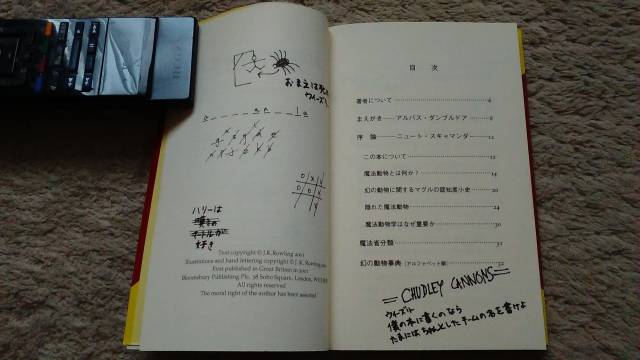 おまえは死ぬ
ウィーズリー
ハリーは
好き
Text copyright © J.K. Rowling 2001
Illustrations and hand lettering copyright © J.K. Rowling 2001
First published in Great Britain in 2001
Bloomsbury Publishing Plc, 38 Soho Square, London, W1D
All rights reserved
The moral right of the author has been asserted
目 次
著者について 6
まえがき アルバス・ダンブルドア 8
序 論 ニュート・スキャマンダー 12
この本について 12
魔法動物とは何か? 14
幻の動物に関するマグルの認知度小史 20
隠れた魔法動物 24
魔法動物学はなぜ重要か 30
魔法省分類 31
幻の動物事典 (アルファベット順) 32
CHUDLEY CANNONS
僕の本に書くのなら
たまにはちゃんとしたチームの名を書けよ